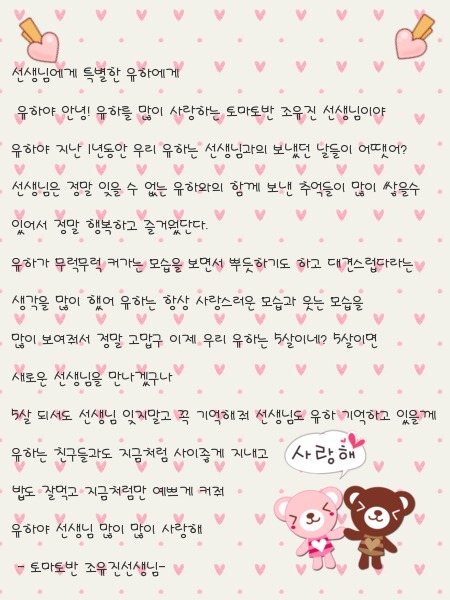 선생님에게 특별한 유하에게
유하야 안녕! 유하를 많이 사랑하는 토마토반 조유진 선생님이야
유하야 지난 1년동안 우리 유하는 선생님과의 보냈던 날들이 어땟어?
선생님은 정말 잊을 수 없는 유하와의 함께 보낸 추억들이 많이 쌓을수
있어서 정말 행복하고 즐거웠단다.
유하가 무럭무럭 커가는 모습을 보면서 뿌듯하기도 하고 대견스럽다라는
생각을 많이 했어 유하는 항상 사랑스러운 모습과 웃는 모습을
많이 보여줘서 정말 고맙구 이제 우리 유하는 5살이네? 5살이면
새로운 선생님을 만나겠구나
5살 되서도 선생님 잊지말고 꼭 기억해줘 선생님도 유하 기억하고 있을께
유하는 친구들과도 지금처럼 사이좋게 지내고
밥도 잘먹고 지금처럼만 예쁘게 커줘
유하야 선생님 많이 많이 사랑해
- 토마토반 조유진선생님-
사랑해